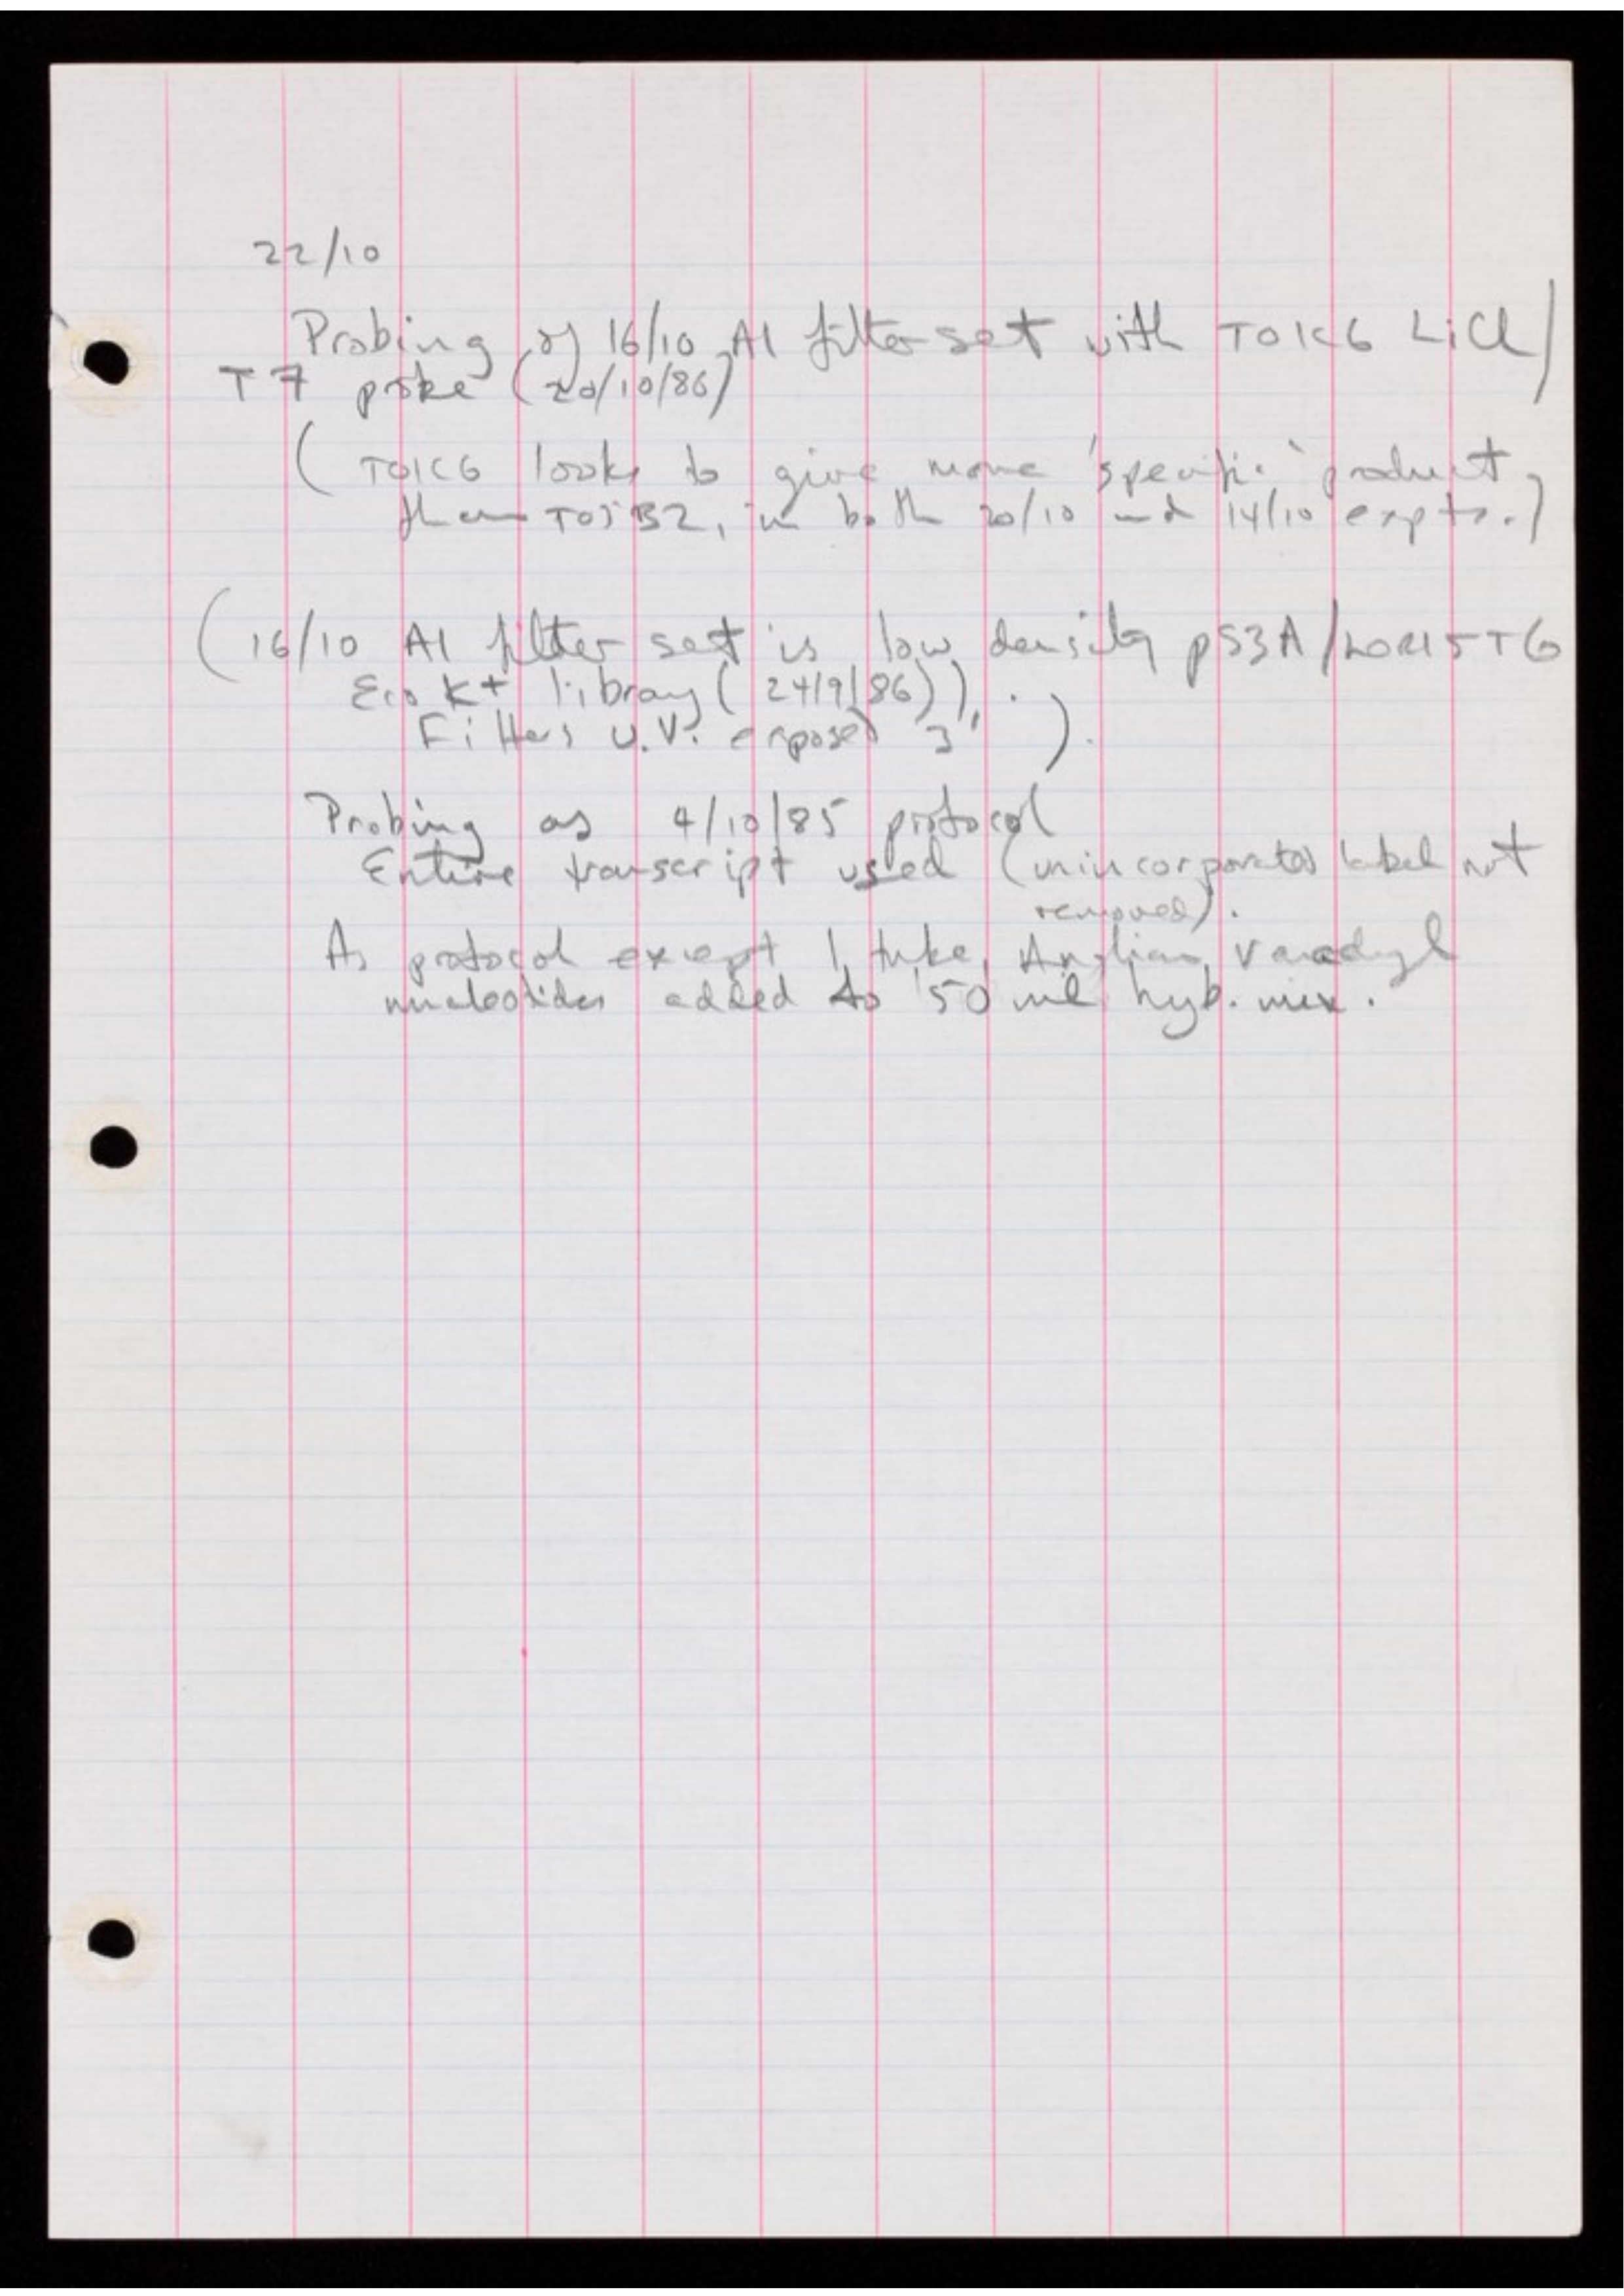 22/10
Probing of 16/10 A1 filter set with TO1C6 LiCl/
T7 probe (20/10/86)
( TO1C6 looks to give more 'specific' product
than TO5B2, in both 20/10 and 14/10 expts.)
(16/10 A1 filter set is low density pS3A/LOR15TG
Eco K+ library (24/9/86)).
Filters U.V. exposed 3' ).
Probing as 4/10/85 protocol
Entire transcript used (unincorporated label not
removed).
As protocol except 1 tube Anglian Vanadyl
nucleotides added to 50 ml hyb. mix.